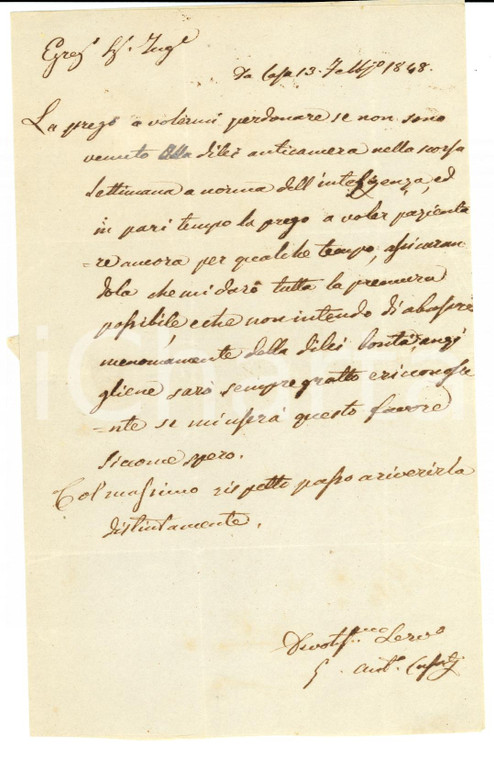 Egreg. Sr. Ingr.
Da Casa 13. Febbjo 1848.
La prego a volermi perdonare se non sono
venuto alla dilei anticamera nella scorsa
settimana a norma dell'inteligenza, ed
in pari tempo la prego a voler pazienta
=re ancora per qualche tempo, assicuran
dola che mi darò tutta la premura
possibile, e che non intendo di abusare
menomamente della dilei bontà, anzi
gliene sarò sempre gratto e riconosce
=nte se mi userà questo favore
siccome spero.
Col massimo rispetto passo a riverirla
distintamente.
Devotissmo Servo
Anto.